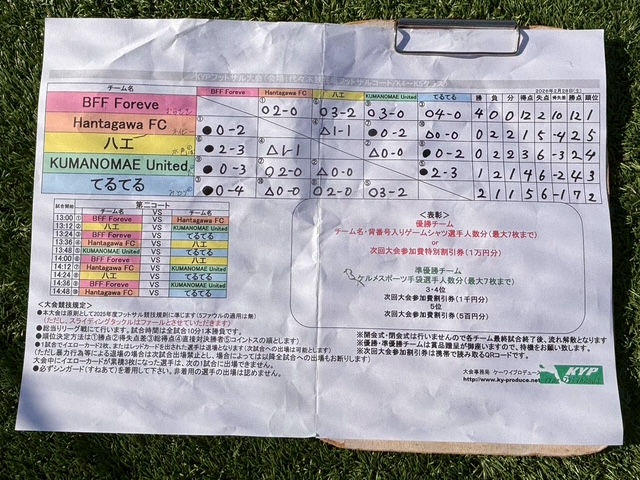 2026年2月28日(土)
チーム名 BFF Foreve Hantagawa FC 八エ KUMANOMAE United てるてる 勝 負 分 得点 失点 得失差 勝点 順位
BFF Foreve ○2-0 ○3-2 ○3-0 ○4-0 4 0 0 12 2 10 12 1
Hantagawa FC ●0-2 △1-1 ●0-2 △0-0 0 2 2 1 5 -4 2 5
八エ ●2-3 △1-1 △0-0 ●0-2 0 2 2 3 6 -3 2 4
KUMANOMAE United ●0-3 ○2-0 △0-0 ●2-3 1 2 1 4 6 -2 4 3
てるてる ●0-4 △0-0 ○2-0 ○3-2 2 1 1 5 6 -1 7 2
第二コート
試合開始 チーム名 VS チーム名
13:00 ① BFF Foreve VS Hantagawa FC
13:12 ② 八エ VS KUMANOMAE United
13:24 ③ BFF Foreve VS てるてる
13:36 ④ Hantagawa FC VS 八エ
13:48 ⑤ KUMANOMAE United VS てるてる
14:00 ⑥ BFF Foreve VS 八エ
14:12 ⑦ Hantagawa FC VS KUMANOMAE United
14:24 ⑧ 八エ VS てるてる
14:36 ⑨ BFF Foreve VS KUMANOMAE United
14:48 ⑩ Hantagawa FC VS てるてる
<表彰>
優勝チーム
チーム名・背番号入りゲームシャツ選手人数分(最大7枚まで)
or
次回大会参加費特別割引券(1万円分)
準優勝チーム
ケルメスポーツ手袋選手人数分(最大7枚まで)
3・4位
次回大会参加費割引券(1千円分)
5位
次回大会参加費割引券(5百円分)
<大会競技規定>
●本大会は原則として2025年度フットサル競技規則に準じます(5ファウルの適用は無)
(ただし、スライディングタックルはファールとさせていただきます)
●総当りリーグ戦にて行います。試合時間は全試合10分1本勝負です。
●順位決定方法は①勝点②得失点差③総得点④直接対決勝者⑤コイントスの順とします
●1試合でイエローカード2枚、またはレッドカードを出された選手は退場となります(次試合への出場は可能とします)
(ただし暴力行為等による退場の場合は次試合出場禁止とし、場合によっては以降全試合への出場もお断りします)
大会中にイエローカードが累積3枚になった選手は、次の1試合に出場できません。
●必ずシンガード(すねあて)を着用して下さい。非着用の選手の出場は認めません。
※開会式・閉会式は行いませんので各チーム最終試合終了後、流れ解散となります
※優勝・準優勝チームは賞品贈呈が御座いますので、待機をお願い致します。
※次回大会参加費割引券は携帯で読み取るQRコードです。
大会事務局 ケーワイプロデュース
http://www.ky-produce.net
KYP